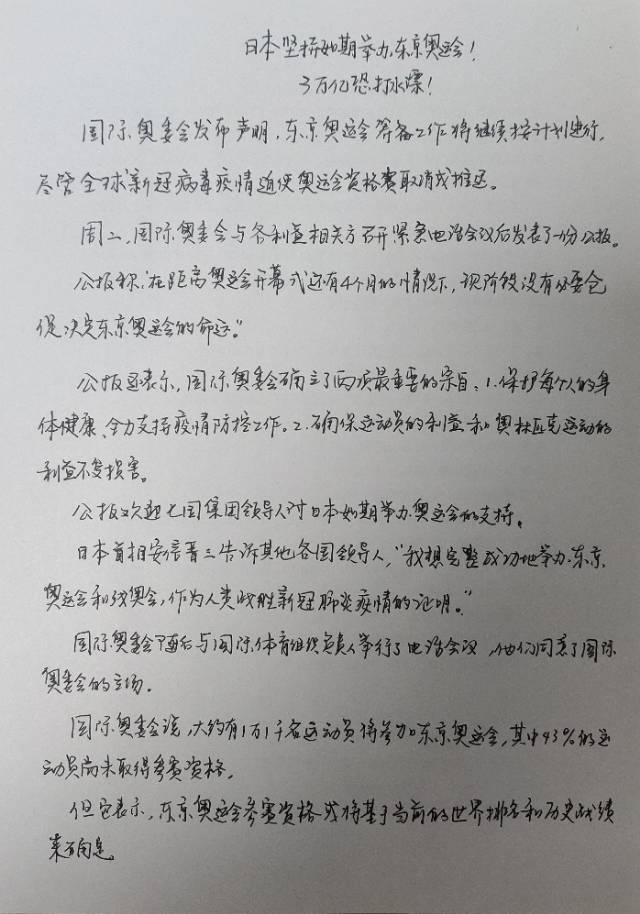 日本坚持如期举办东京奥运会!
3万亿恐打水漂!
国际奥委会发布声明,东京奥运会筹备工作将继续按计划进行,
尽管全球新冠病毒疫情迫使奥运会资格赛取消或推迟。
周二,国际奥委会与各利益相关方召开紧急电话会议后发表了一份公报。
公报称,"在距离奥运会开幕式还有4个月的情况下,现阶段没有必要仓
促决定东京奥运会的命运。"
公报还表示,国际奥委会确立了两项最重要的宗旨:1.保护每个人的身
体健康、全力支持疫情防控工作。2.确保运动员的利益和奥林匹克运动的
利益不受损害。
公报欢迎七国集团领导人对日本如期举办奥运会的支持。
日本首相安倍晋三告诉其他各国领导人,"我想完整成功地举办东京
奥运会和残奥会,作为人类战胜新冠肺炎疫情的证明。"
国际奥委会随后与国际体育组织负责人举行了电话会议,他们同意了国际
奥委会的立场。
国际奥委会说,大约有1万1千名运动员将参加东京奥运会,其中43%的运
动员尚未取得参赛资格。
但它表示,东京奥运会参赛资格或将基于当前的世界排名和历史战绩
来确定。